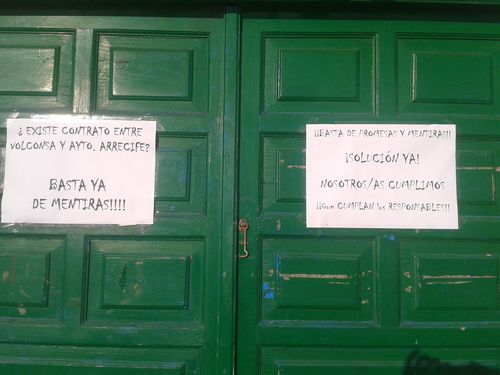 ¿ EXISTE CONTRATO ENTRE
VOLCONSA Y AYTO. ARRECIFE?
BASTA YA
DE MENTIRAS!!!!
¡¡BASTA DE PROMESAS Y MENTIRAS!!
¡SOLUCIÓN YA!
NOSOTROS/AS CUMPLIMOS
¡¡Que CUMPLAN los RESPONSABLES!!